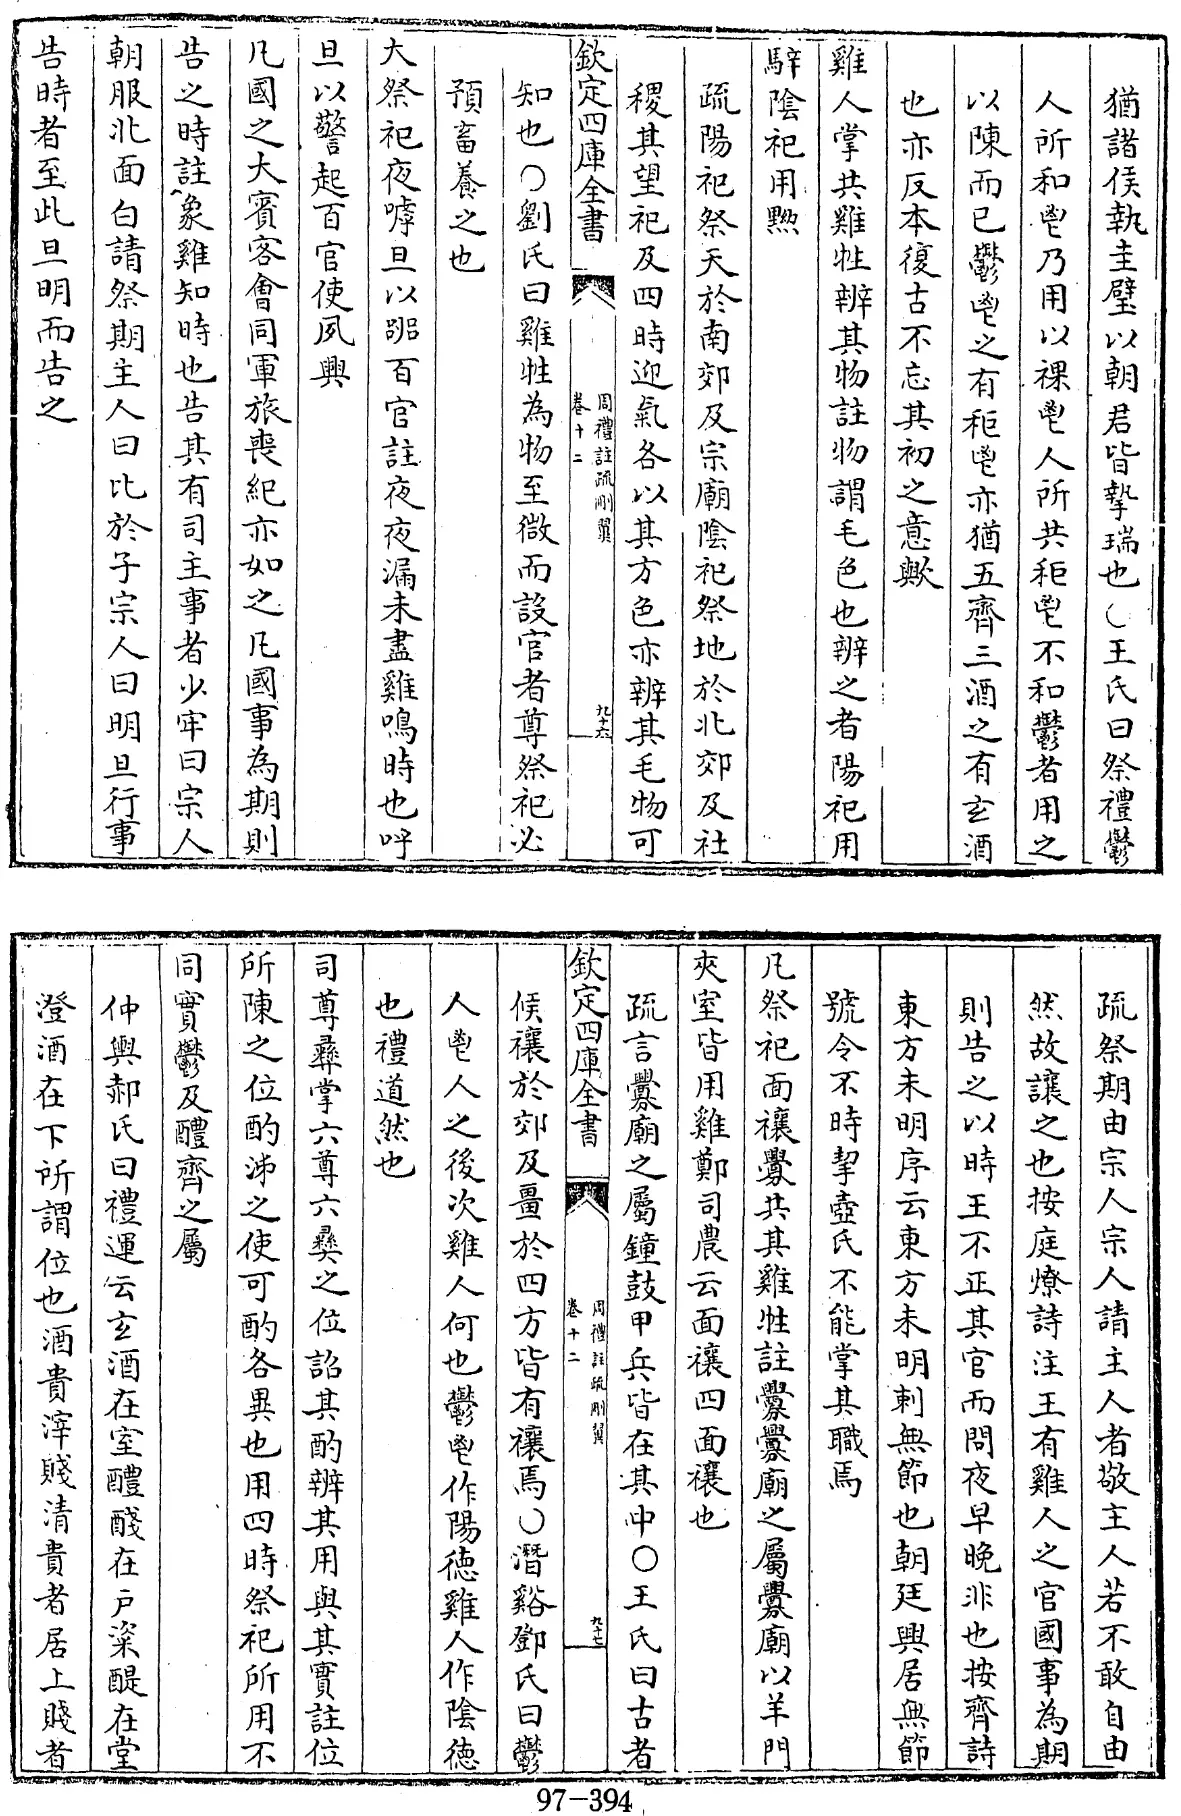 猶諸侯執圭璧以朝君皆摯瑞也○王氏曰祭禮鬱
人所和鬯乃用以祼鬯人所共秬鬯不和鬱者用之
以陳而已鬱鬯之有秬鬯亦猶五齊三酒之有玄酒
也亦反本復古不忘其初之意歟
雞人掌共雞牲辨其物註物謂毛色也辨之者陽祀用
騂陰祀用黝
疏陽祀祭天於南郊及宗廟陰祀祭地於北郊及社
稷其望祀及四時迎氣各以其方色亦辨其毛物可
欽定四庫全書
周禮註疏刪翼
卷十二
九十六
知也○劉氏曰雞牲為物至微而設官者尊祭祀必
預畜養之也
大祭祀夜嘑旦以嘂百官註夜夜漏未盡雞鳴時也呼
旦以警起百官使夙興
凡國之大賓客會同軍旅喪紀亦如之凡國事為期則
告之時註象雞知時也告其有司主事者少牢曰宗人
朝服北面白請祭期主人曰比於子宗人曰明旦行事
告時者至此旦明而告之
疏祭期由宗人宗人請主人者敬主人若不敢自由
然故讓之也按庭燎詩注王有雞人之官國事為期
則告之以時王不正其官而問夜早晚非也按齊詩
東方未明序云東方未明刺無節也朝廷興居無節
號令不時挈壺氏不能掌其職焉
凡祭祀面禳釁共其雞牲註釁釁廟之屬釁廟以羊門
夾室皆用雞鄭司農云面禳四面禳也
疏言釁廟之屬鐘鼓甲兵皆在其中○王氏曰古者
欽定四庫全書
周禮註疏刪翼
卷十二
九十七
侯禳於郊及畺於四方皆有禳焉○潛谿鄧氏曰鬱
人鬯人之後次雞人何也鬱鬯作陽德雞人作陰德
也禮道然也
司尊彞掌六尊六彞之位詔其酌辨其用與其實註位
所陳之位酌泲之使可酌各異也用四時祭祀所用不
同實鬱及醴齊之屬
仲輿郝氏曰禮運云玄酒在室醴醆在戶粢醍在堂
澄酒在下所謂位也酒貴滓賤清貴者居上賤者
97-394